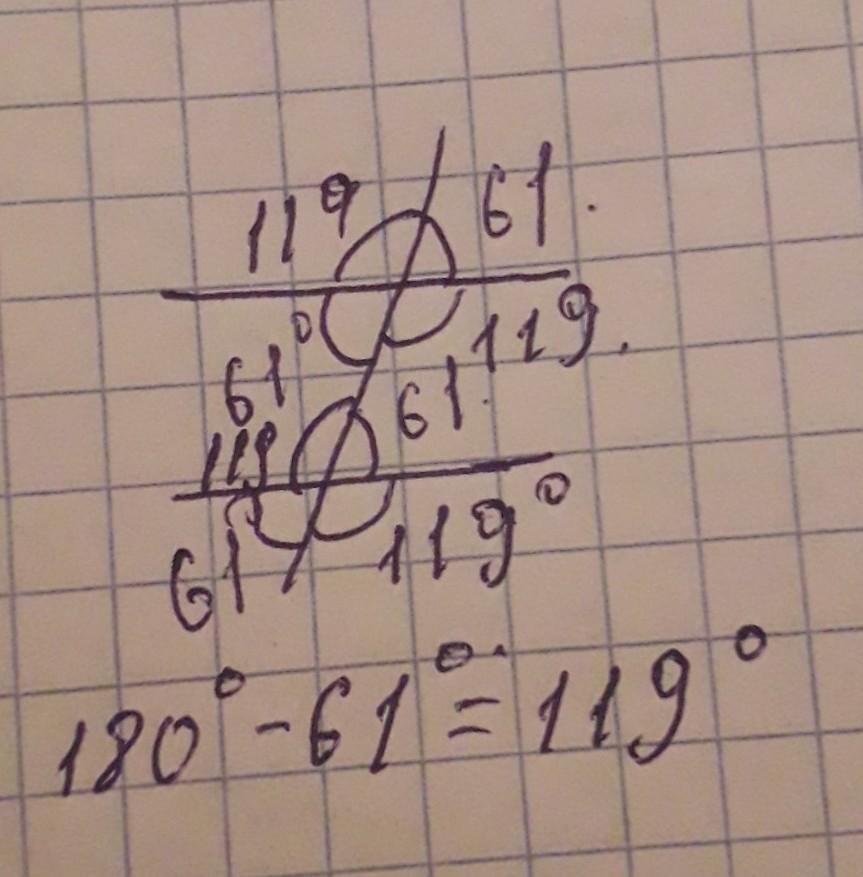 119 61.
61° 119.
119 61.
61 119°
180° - 61° = 119°